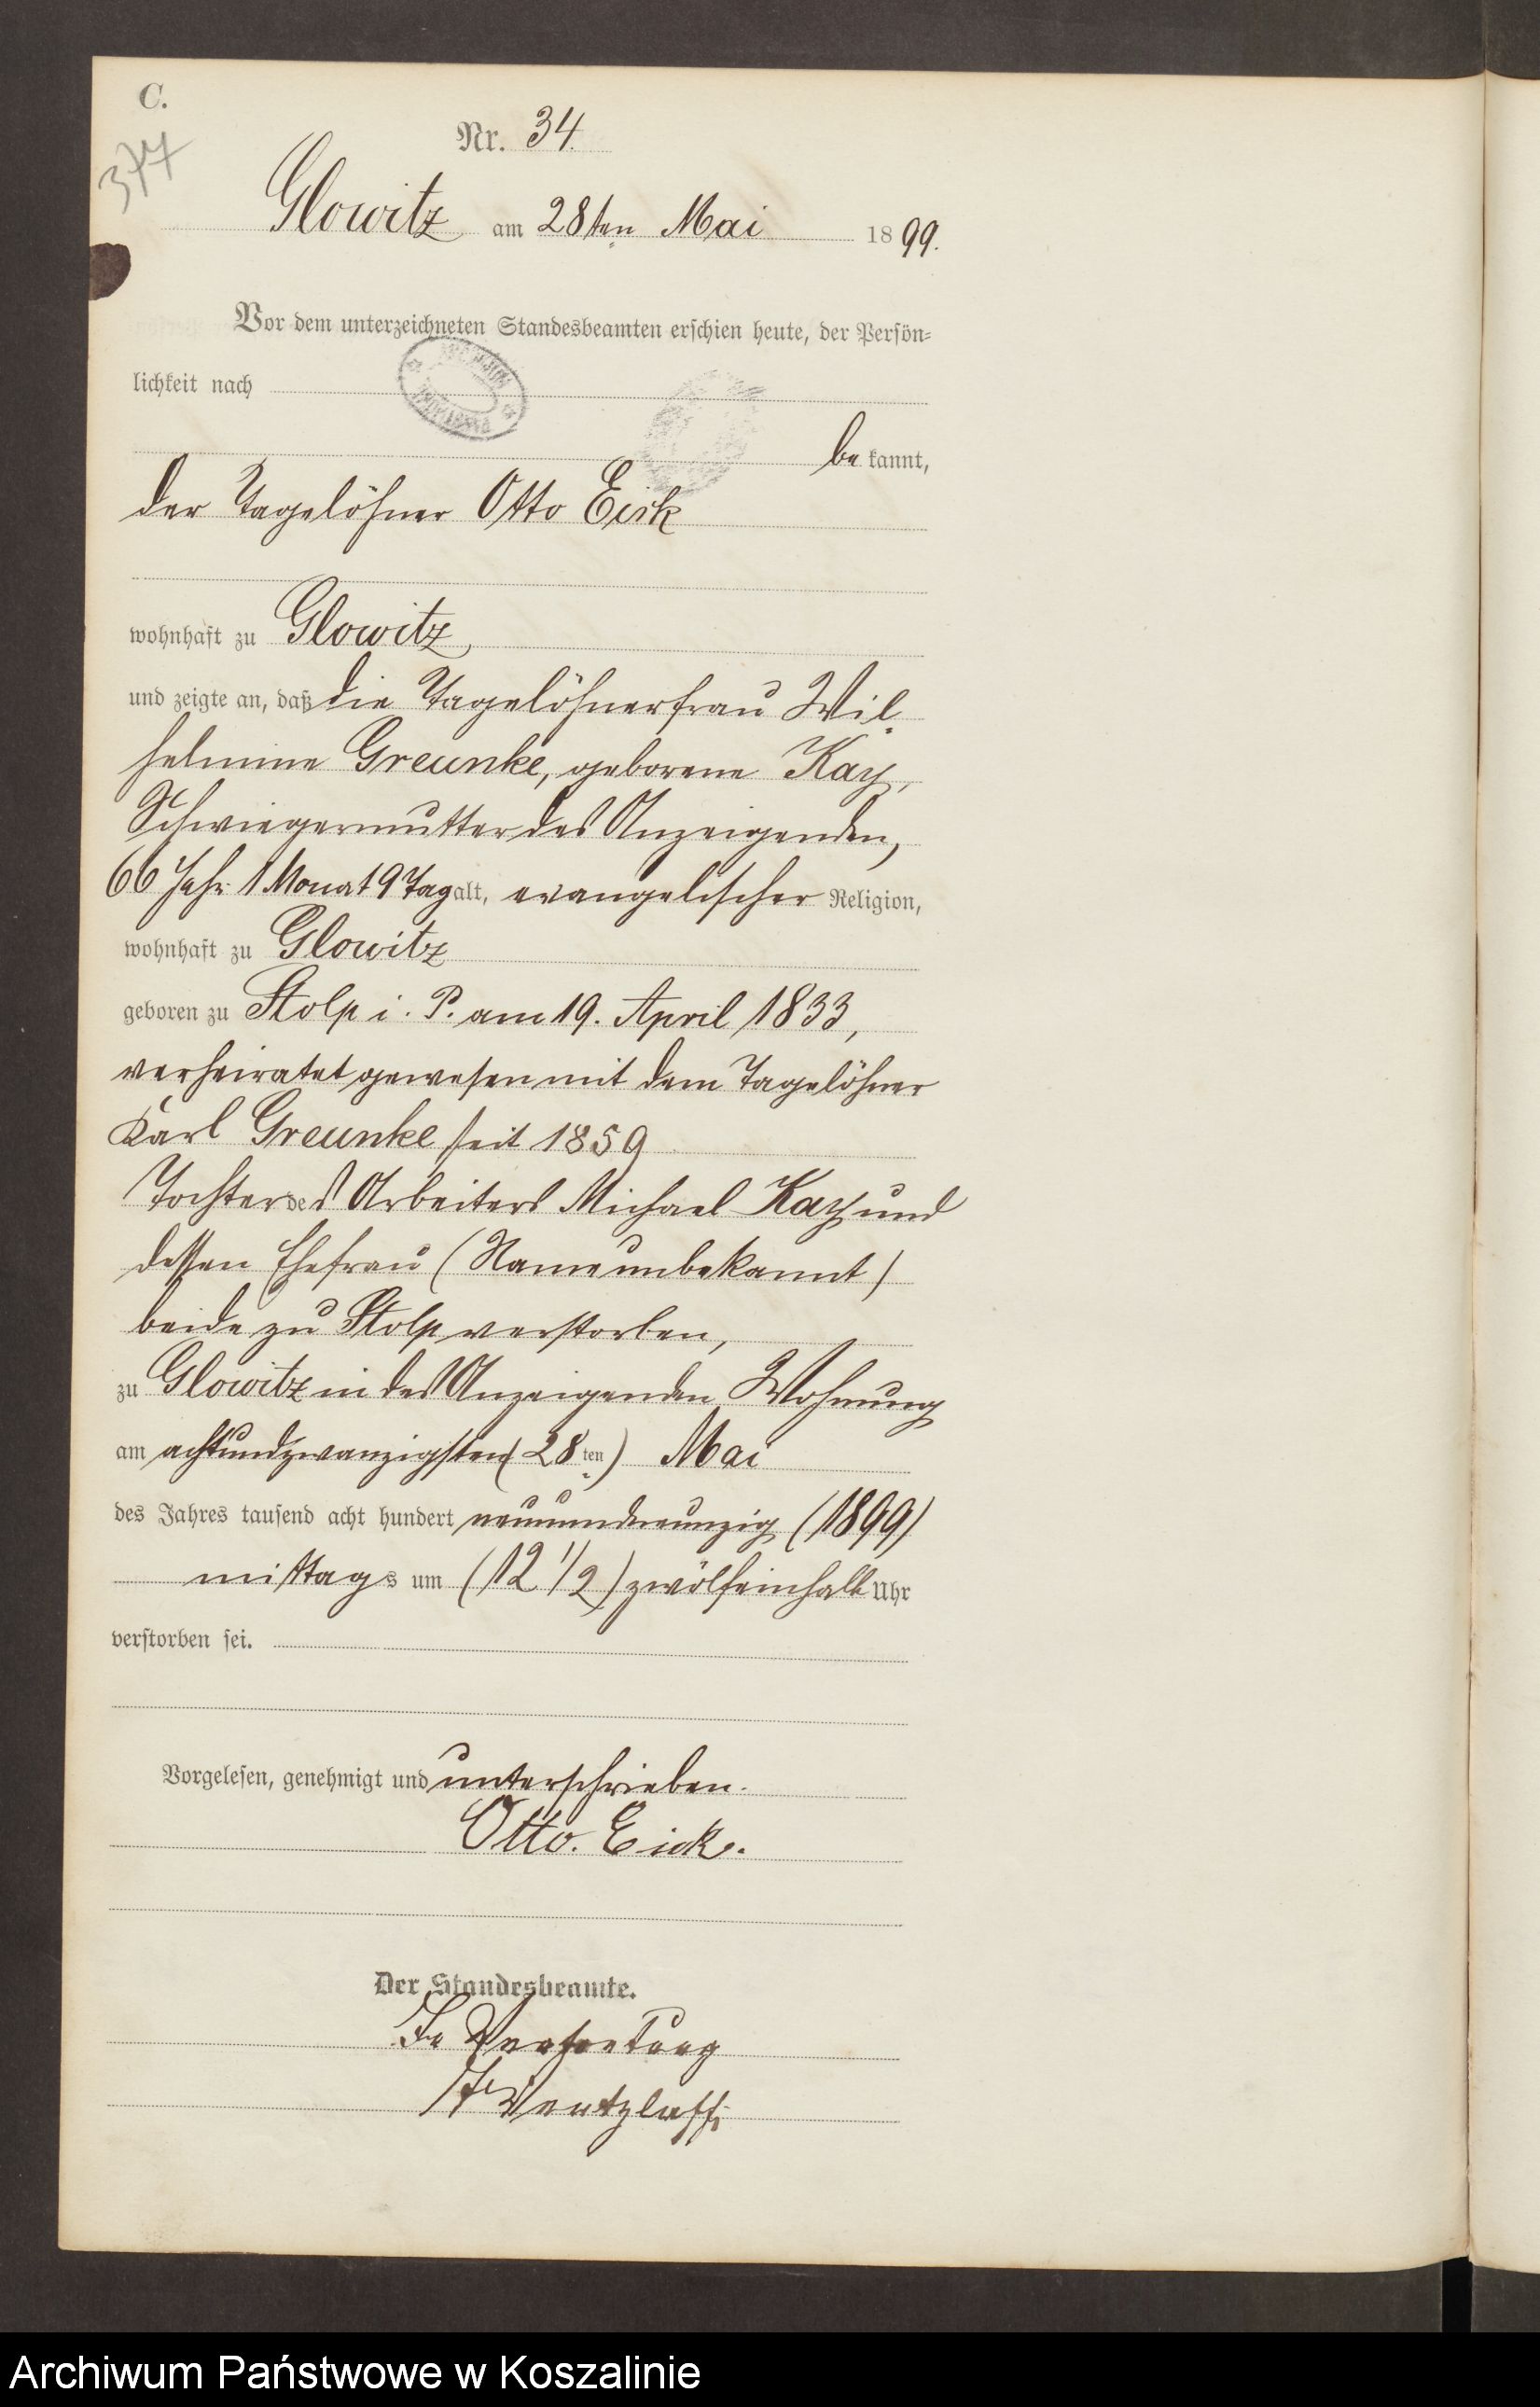 C.
377
Nr. 34.
Glowitz am 28ten Mai 1899.
Vor dem unterzeichneten Standesbeamten erschien heute, der Persön-
lichkeit nach
bekannt,
der Tagelöhner Otto Eick
wohnhaft zu Glowitz,
und zeigte an, daß die Tagelöhnerfrau Wil-
helmine Greunke, geborene Kay,
Schwiegermutter des Anzeigenden,
66 Jahr 1 Monat 9 Tag alt, evangelischer Religion,
wohnhaft zu Glowitz
geboren zu Stolp i. P. am 19. April 1833,
verheiratet gewesen mit dem Tagelöhner
Karl Greunke seit 1859
Tochter des Arbeiters Michael Kay und
dessen Ehefrau (Name unbekannt)
beide zu Stolp verstorben,
zu Glowitz in des Anzeigenden Wohnung
am achtundzwanzigsten (28ten) Mai
des Jahres tausend acht hundert neunundneunzig (1899)
mittags um (12 1/2) zwölfeinhalb Uhr
verstorben sei.
Vorgelesen, genehmigt und unterschrieben.
Otto. Eick.
Der Standesbeamte.
In Vertretung
Wentzlaff
Archiwum Państwowe w Koszalinie